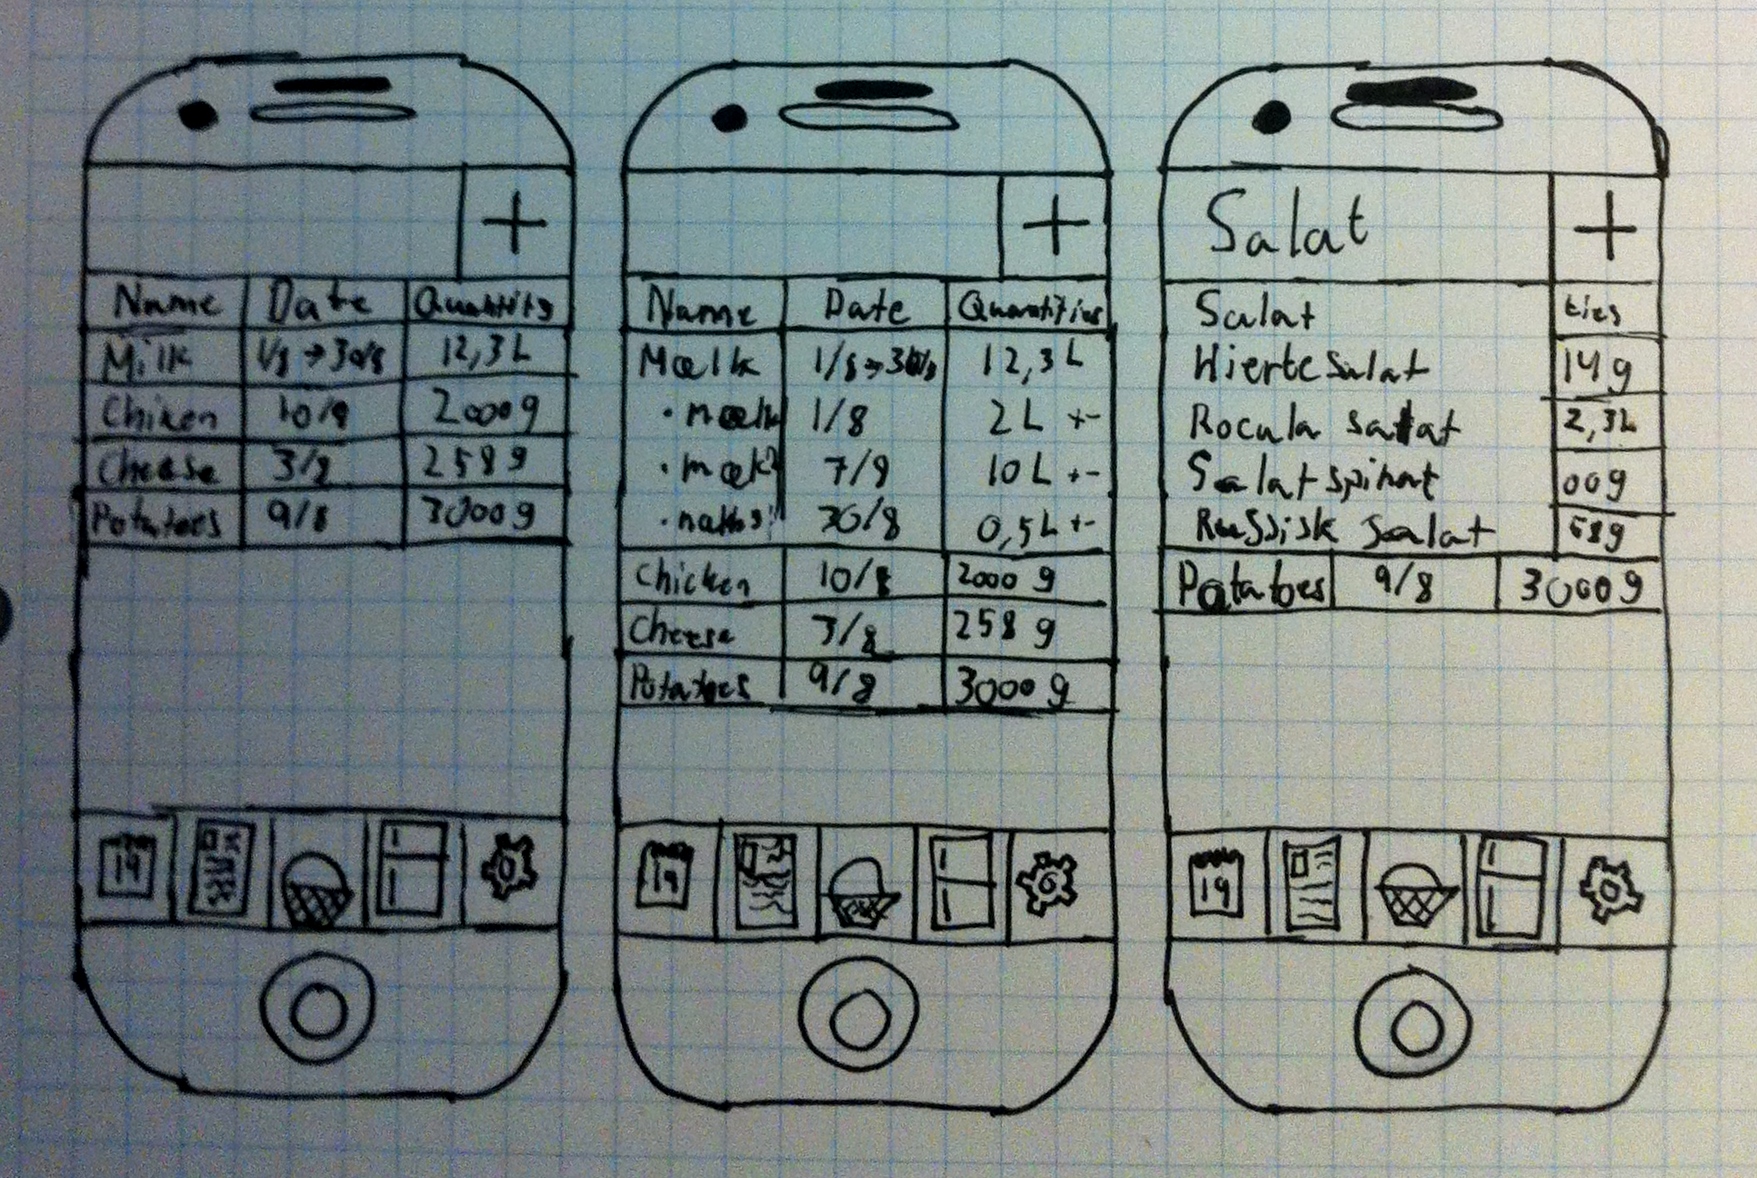 +
Name Date Quantity
Milk 1/8 → 30/8 12,3 L
Chiken 10/8 2000 g
Cheese 3/8 258 g
Potatoes 9/8 3000 g
19
+
Name Date Quantities
Mælk 1/8 → 30/8 12,3 L
· mælk 1/8 2 L +-
· mælk 7/8 10 L +-
30/8 0,5 L +-
Chicken 10/8 2000 g
Cheese 3/8 258 g
Potatoes 9/8 3000 g
19
Salat +
Salat ties
Hjerte Salat 14 g
Rocula salat 2,3 L
Salat spinat 00 g
Russisk Salat 58 g
Potatoes 9/8 3000 g
19